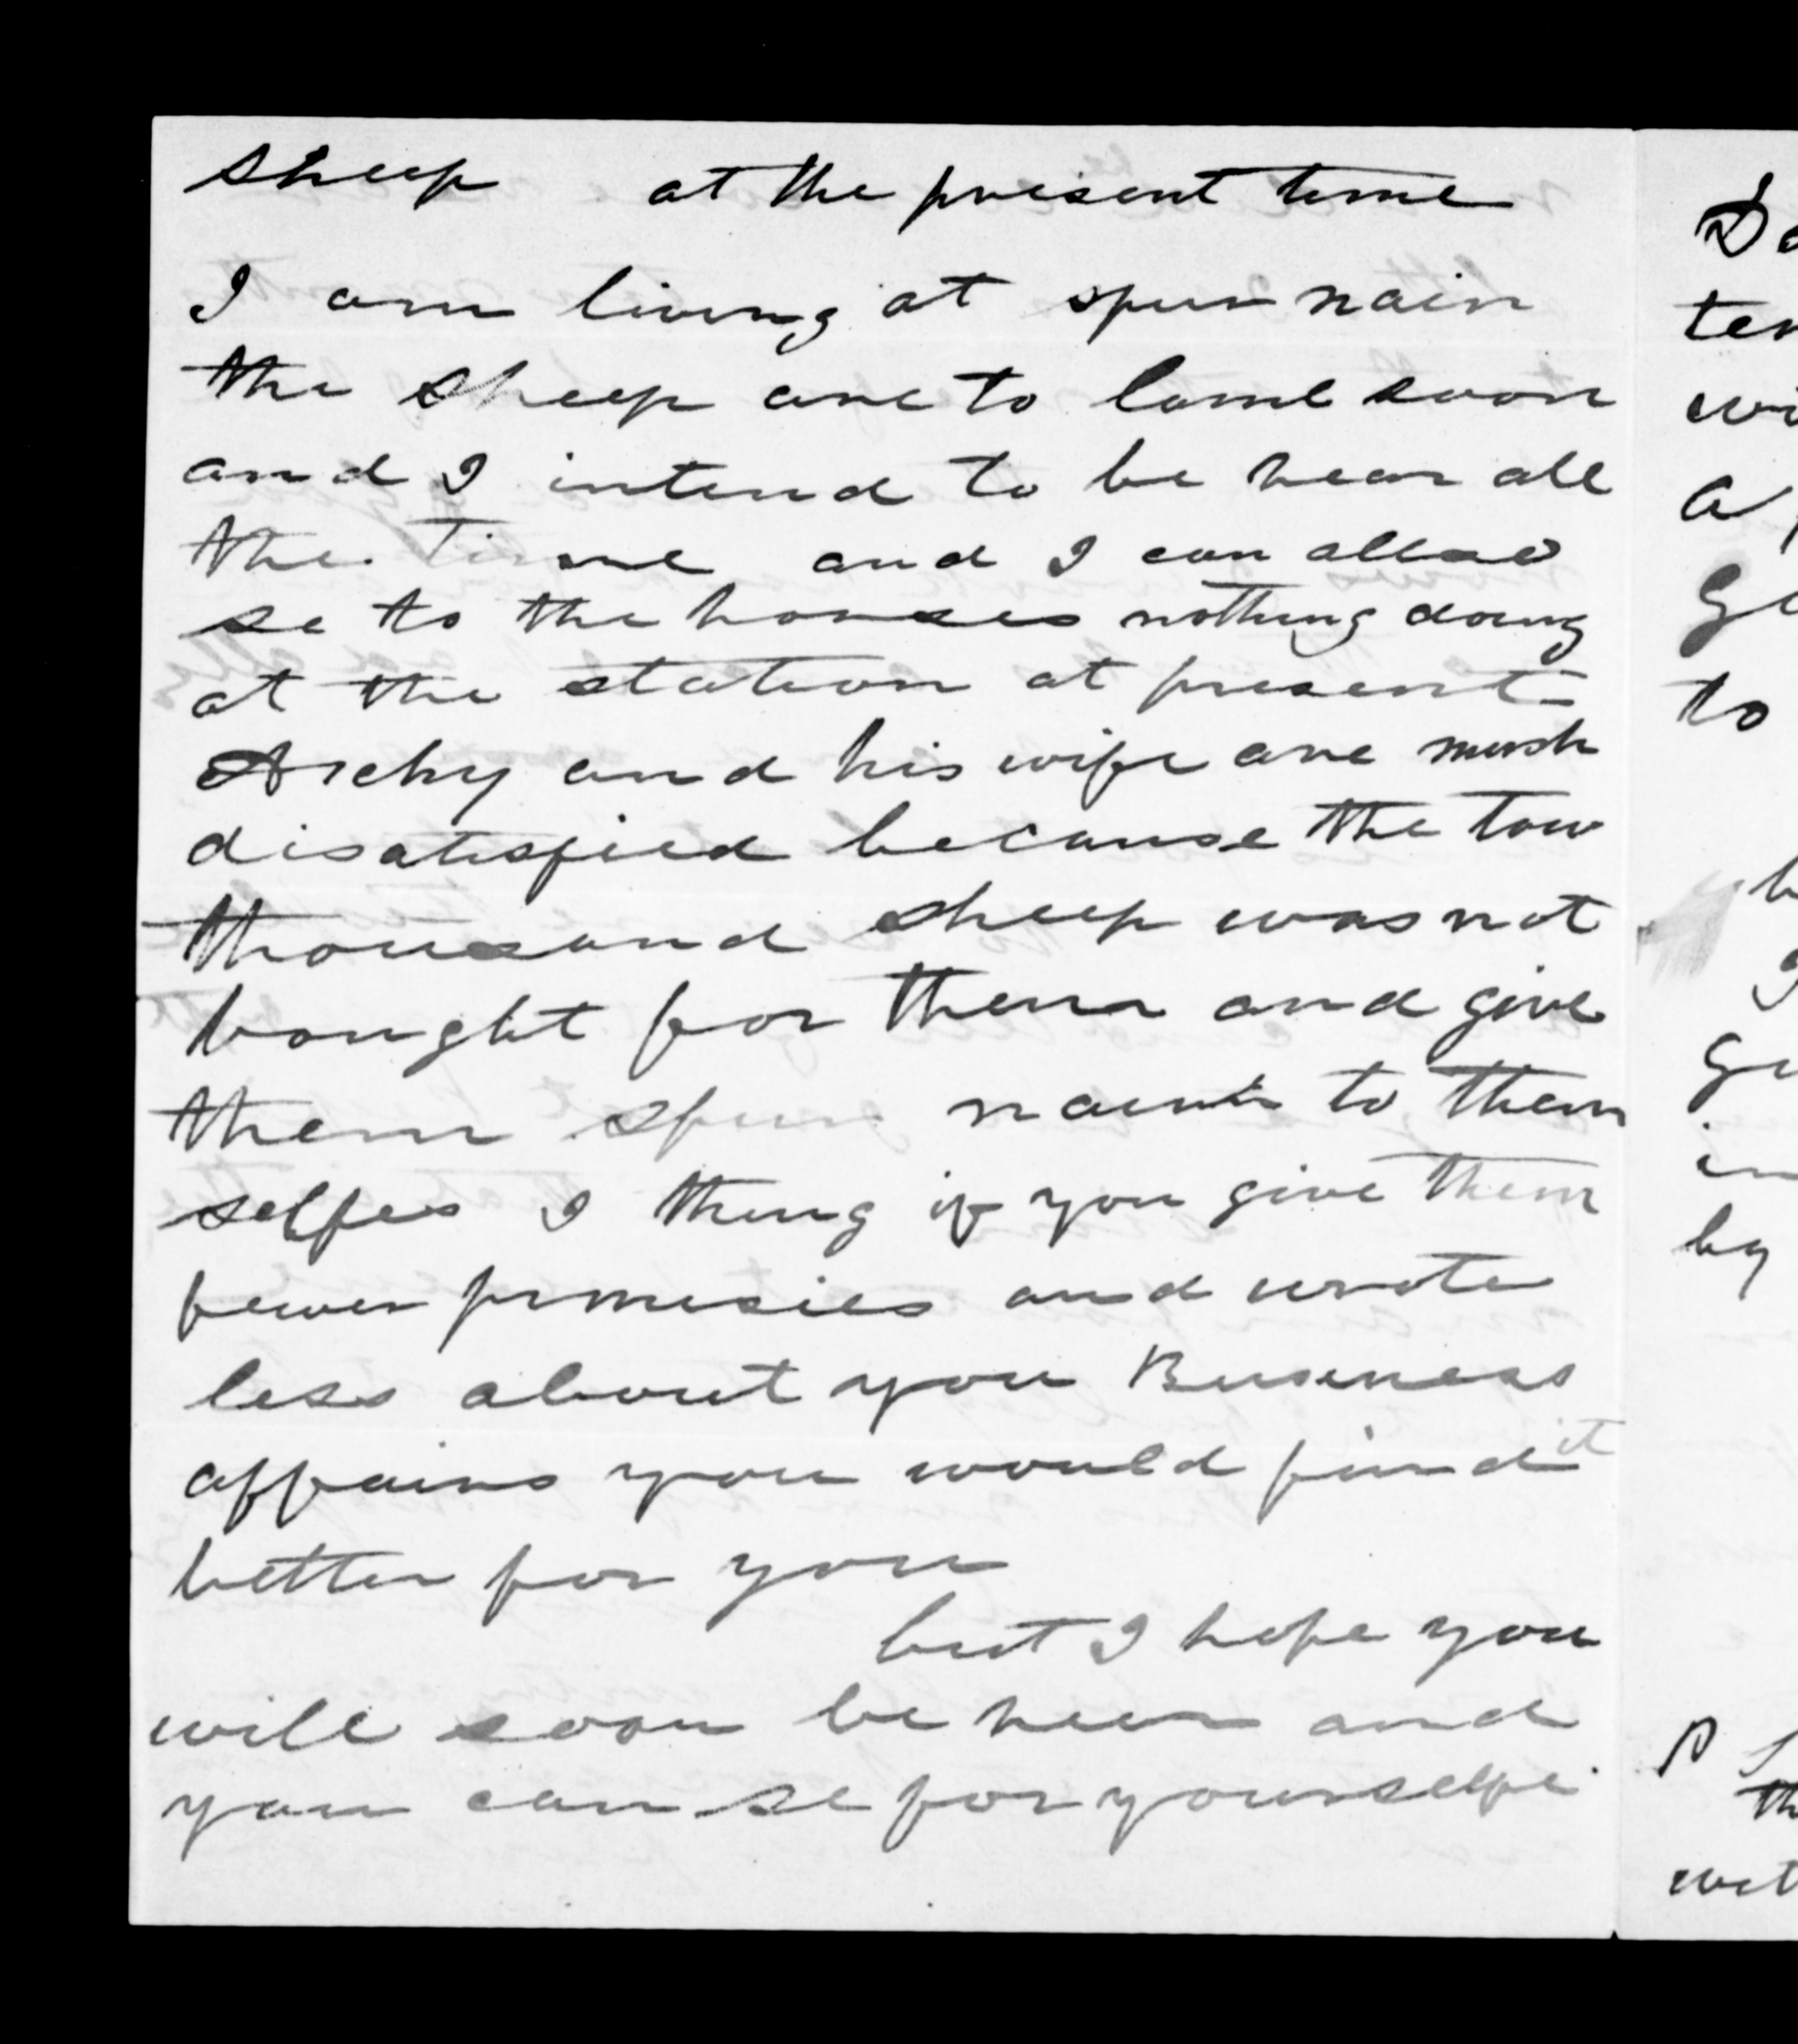 sheep at the present time
I am living at spur nain
the sheep are to lame soon
and I intend to be hear all
the time and I can allso
se to the horses nothing doing
at the station at present
Archy and his wife are mush
disatisfied because the tow
thousand sheep was not
bought for them and give
them spur nain to them
selfes I thing if you give them
fewer promisies and wrote
less about you Business
affairs you would find it
better for you
but I hope you
will soon be hear and
you can se for yourselfe